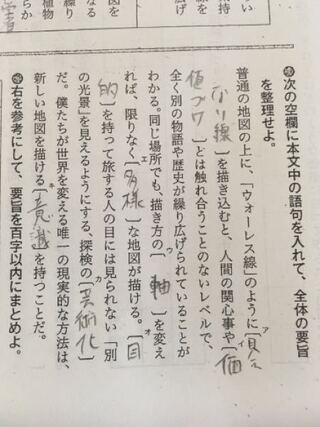 次の空欄に本文中の語句を入れて、全体の要旨
を整理せよ。
普通の地図の上に、「ウォーレス線」のように〔見え
ない線〕を描き込むと、人間の関心事や〔価
値づけ〕とは触れ合うことのないレベルで、
全く別の物語や歴史が繰り広げられていることが
わかる。同じ場所でも、描き方の〔軸〕を変え
れば、限りなく〔多様〕な地図が描ける。〔目
的〕を持って旅する人の目には見られない「別
の光景」を見えるようにする、探検の〔芸術化〕
だ。僕たちが世界を変える唯一の現実的な方法は、
新しい地図を描ける〔意識〕を持つことだ。
右を参考にして、要旨を百字以内にまとめよ。